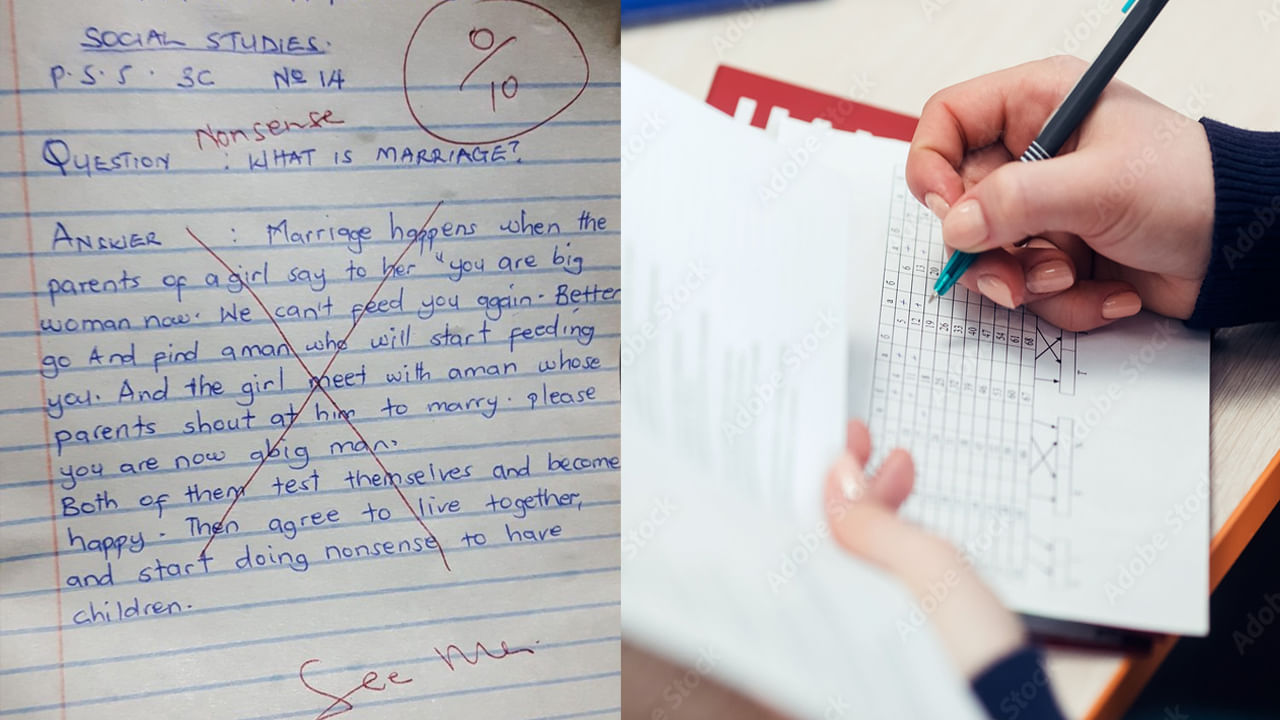 SOCIAL STUDIES.
P.S.S. 3C No 14
0/10
Nonsense
QUESTION : WHAT IS MARRIAGE?
ANSWER : Marriage happens when the
parents of a girl say to her "you are big
woman now. We can't feed you again. Better
go And find a man who will start feeding
you. And the girl meet with aman whose
parents shout at him to marry. please
you are now abig man.
Both of them test themselves and become
happy. Then agree to live together,
and start doing nonsense to have
children.
See Me.
Adobe Stock